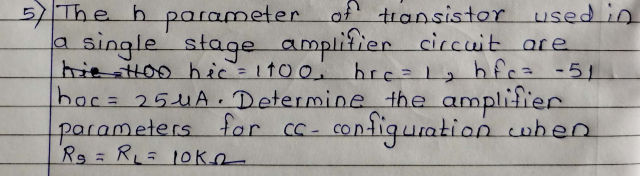 5) The h parameter of transistor used in
a single stage amplifier circuit are
hic = 1100, hrc = 1, hfc = -51
hoc = 25uA. Determine the amplifier
parameters for cc-configuration when
Rs = RL = 10KΩ